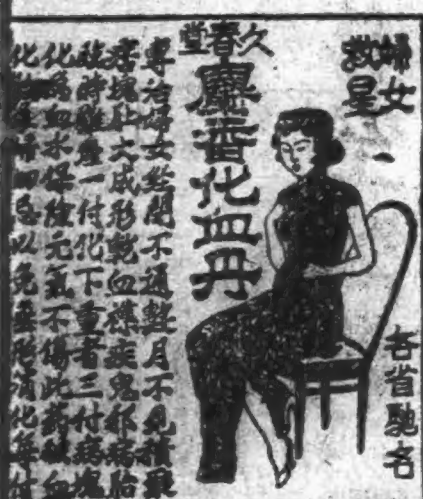 婦女
救星
各省馳名
久春堂
麝香化血丹
專治婦女經閉不通整月不見積聚
塊肚大成形乾血癆症鬼邪病胎
時難產一付化下重者三付病塊
化為血水保險元氣不傷此药破血
化胎孕婦切忌以免無形消化每付